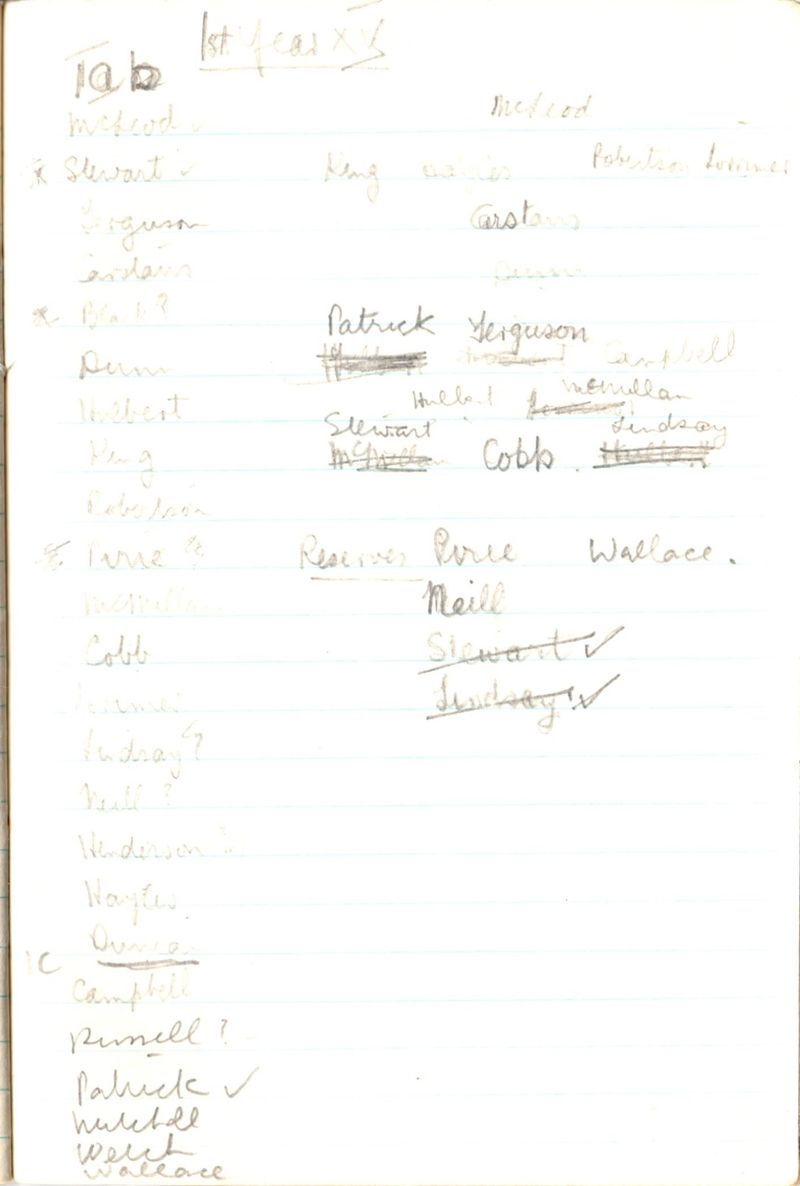 1st Year XV
1ab
McLeod ✓ McLeod
Stewart ✓ King Hayles Robertson Lorimer
Ferguson Carstairs
Carstairs Dunn
Black?
Patrick Ferguson
Dunn Campbell
Hulbert Hulbert McMillan
Stewart Lindsay
King McMillan Cobb.
Robertson
Pirie ? Reserves Pirie Wallace.
McMillan Neill
Cobb Stewart ✓
Lorimer Lindsay ✓
Lindsay ?
Neill ?
Henderson ?
Duncan
1C
Campbell
Russell ?
Patrick ✓
Mitchell
Welch
Wallace